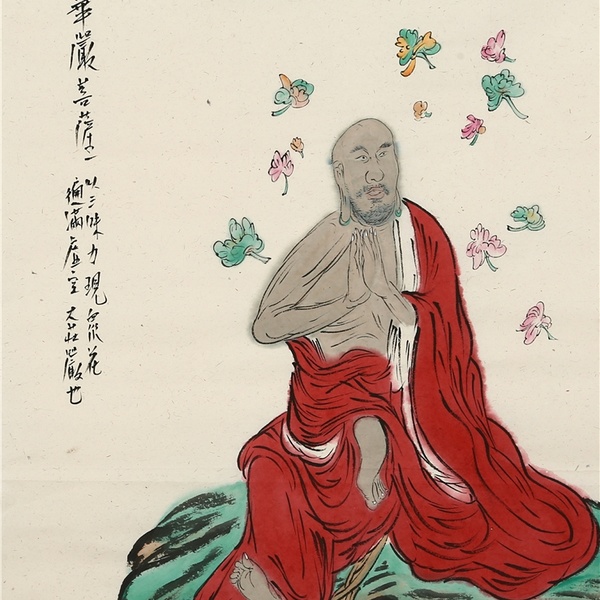 華嚴菩薩
以三昧力現眾花
徧滿虛空大莊嚴也